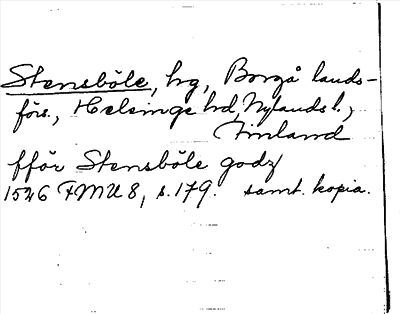 Stensböle, hg, Borgå lands-
förs., Helsinge hd, Nylands l.,
Finland
fför Stensböle godz
1526 FMU 8, s. 179. samt. kopia.